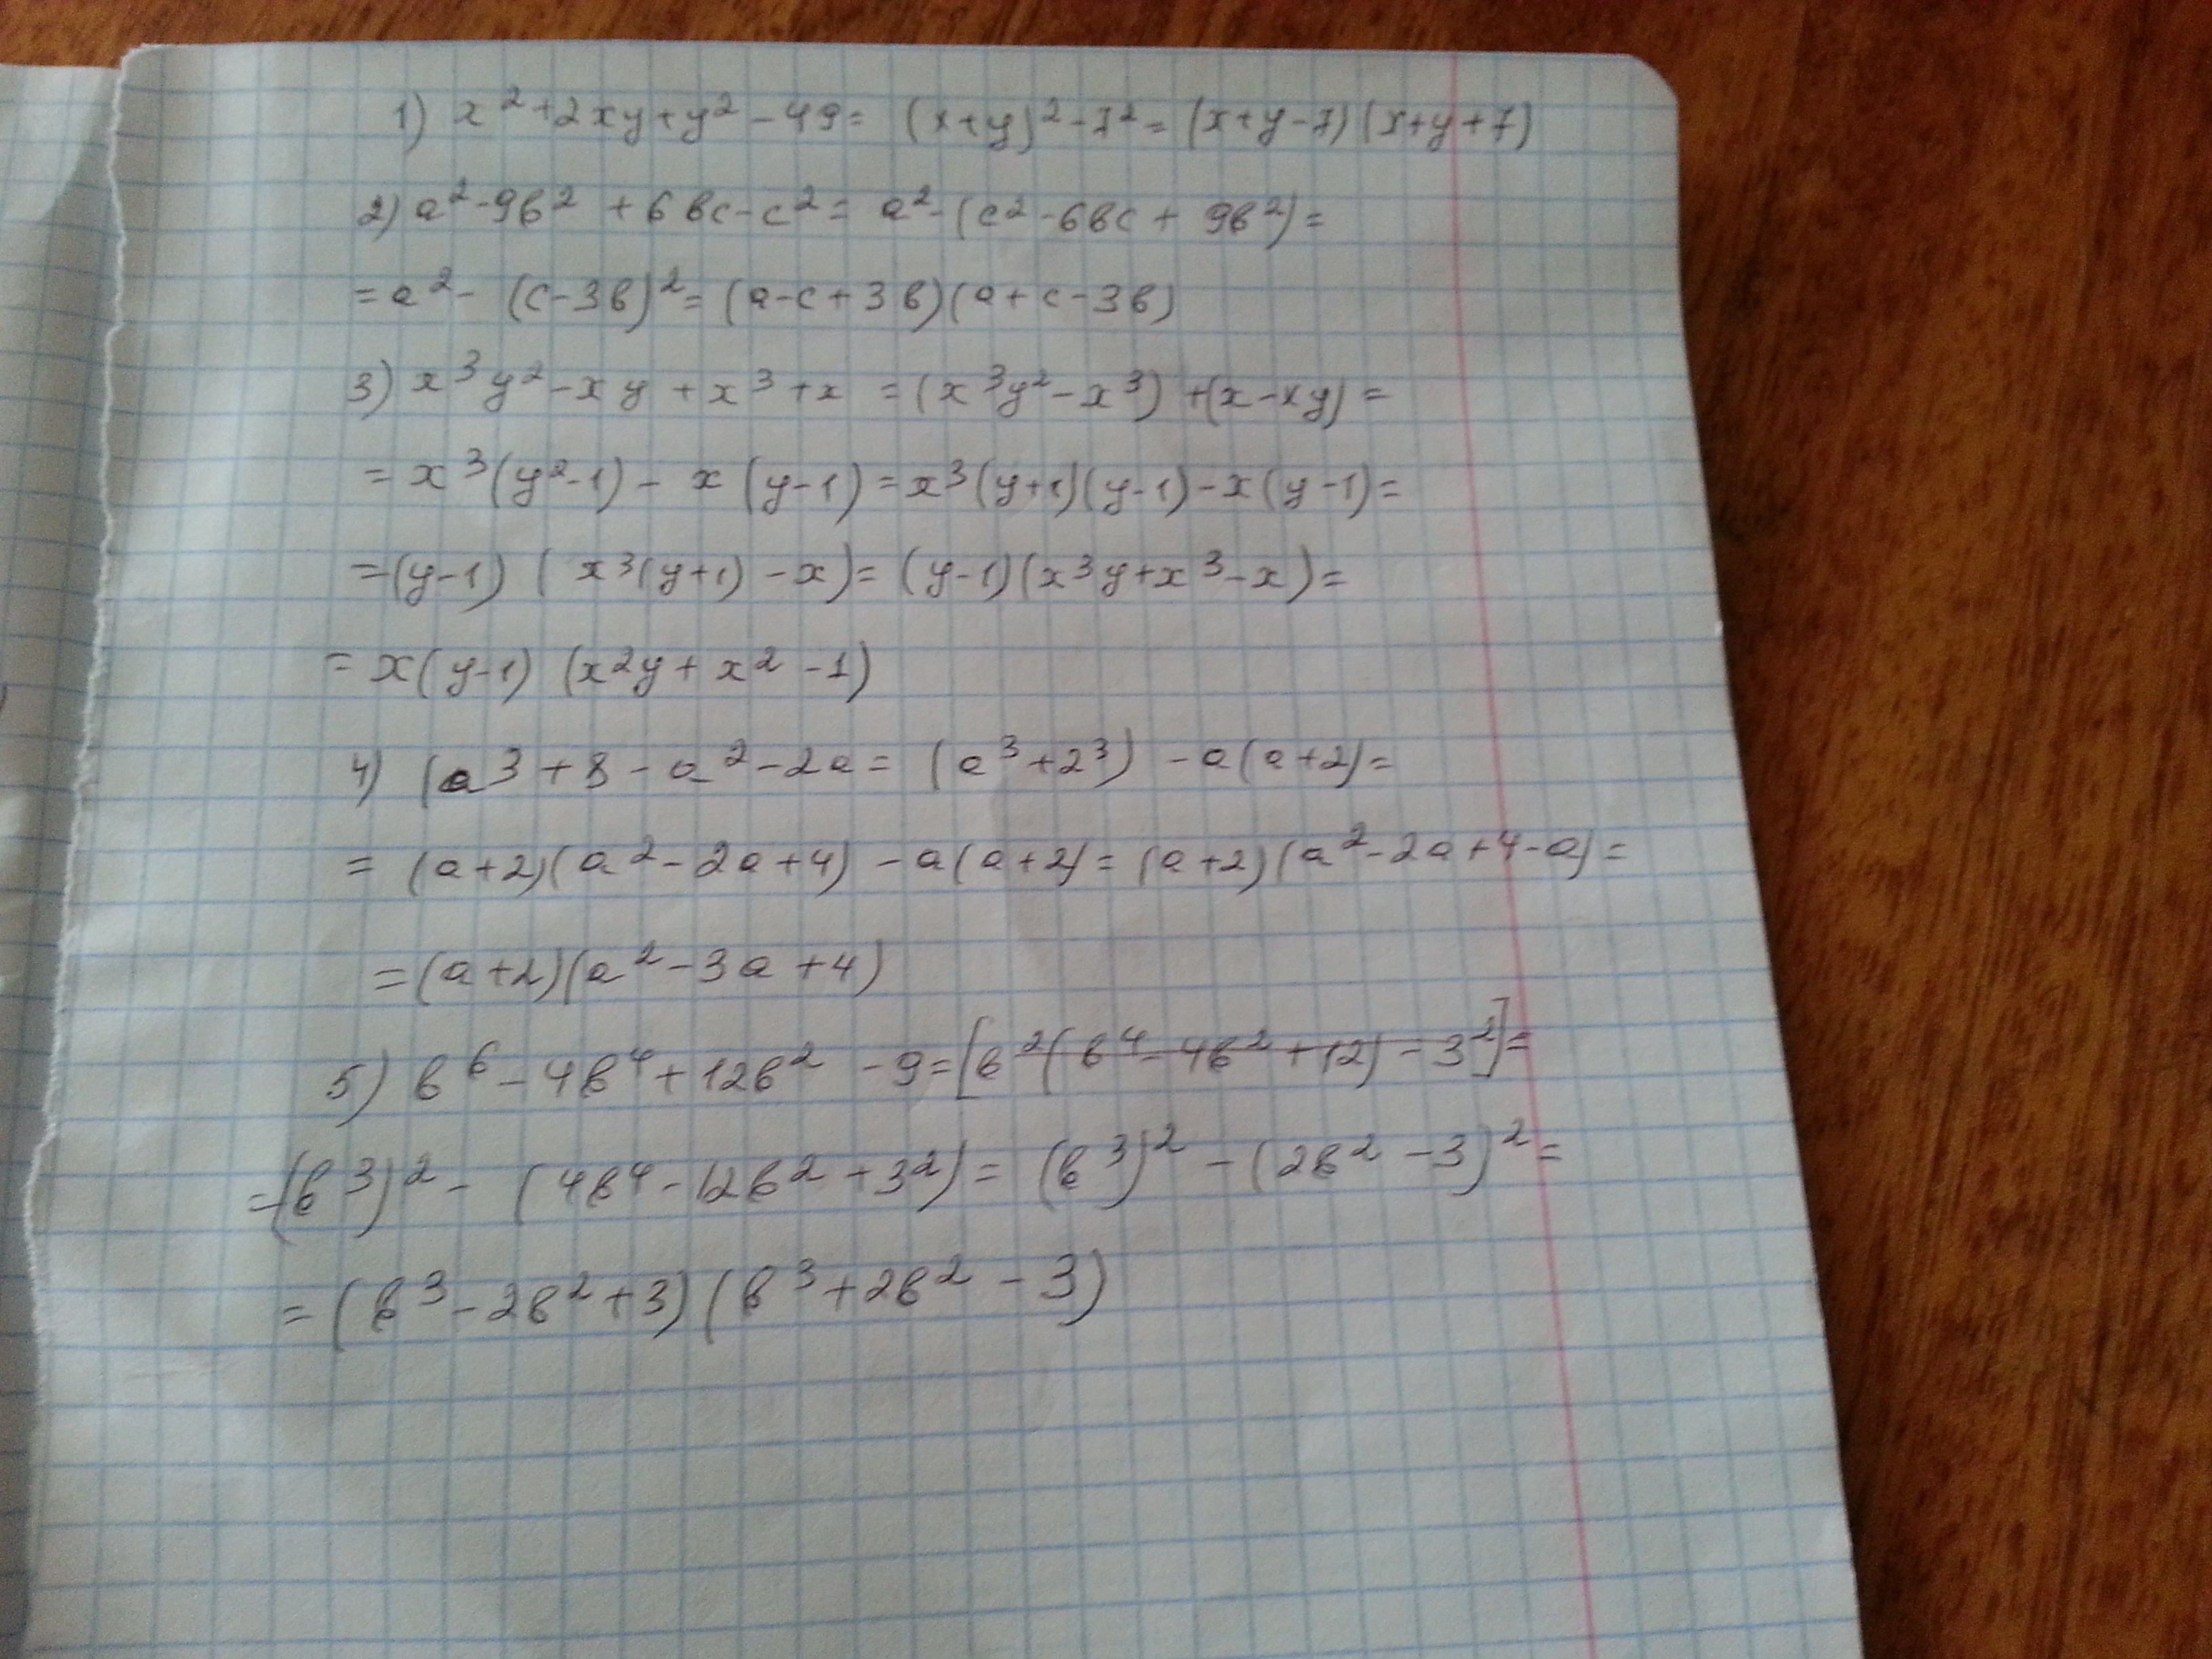 1) x²+2xy+y²-49= (x+y)²-7²= (x+y-7)(x+y+7)
2) a²-9в² +6вс-с²= a²-(с²-6вс+ 9в²)=
=a²- (с-3в)²= (a-с+3в)(a+с-3в)
3) x³y²-xy+x³+x =(x³y²-x³)+(x-xy)=
=x³(y²-1)- x(y-1)=x³(y+1)(y-1)-x(y-1)=
=(y-1) (x³(y+1)-x)=(y-1)(x³y+x³-x)=
=x(y-1)(x²y+x²-1)
4) (a³+8-a²-2a= (a³+2³) -a(a+2)=
= (a+2)(a²-2a+4)-a(a+2)=(a+2)(a²-2a+4-a)=
=(a+2)(a²-3a+4)
5) в⁶-4в⁴+12в² -9=[в²(в⁴-4в²+12)-3²]=
=(в³)²- (4в⁴-12в²+3²)= (в³)²-(2в²-3)²=
=(в³-2в²+3)(в³+2в²-3)